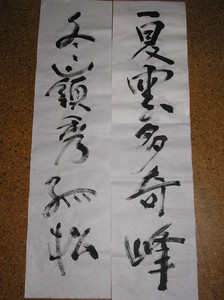 夏雲多奇峰
冬嶺秀孤松